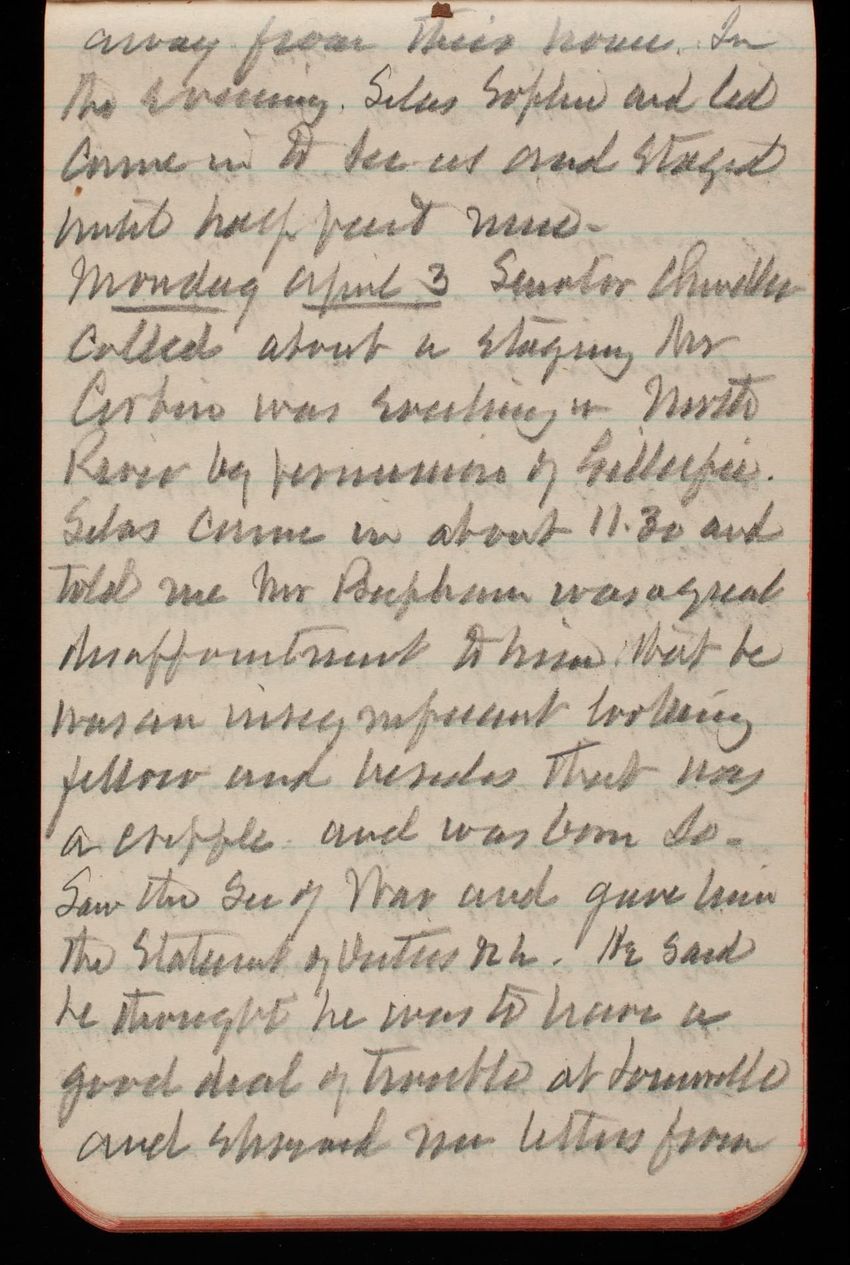 away from their house. In
the evening. Silas Sophie and Led
came in to see us and stayed
until half past nine-
Monday April 3 Senator Chandler
called about a staying Mr
Corbin was working in North
River by permission of Gillespie.
Silas came in about 11.30 and
told me Mr was a great
disappointment to him that he
was an insignificant looking
fellow and besides that was
a cripple and was born so-
Saw the Sec of War and gave him
the Statement of duties &c. He said
he thought he was to have a
good deal of trouble at
and showed me letters from